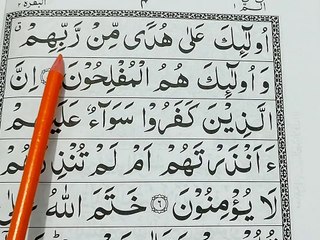 البقرة ٢ الٓمّٓ ١
اُولٰٓئِكَ عَلٰى هُدًى مِّنْ رَّبِّهِمْ ۗ
وَاُولٰٓئِكَ هُمُ الْمُفْلِحُوْنَ ۝ اِنَّ
الَّذِيْنَ كَفَرُوْا سَوَآءٌ عَلَيْهِمْ
ءَاَنْذَرْتَهُمْ اَمْ لَمْ تُنْذِرْهُمْ
لَا يُؤْمِنُوْنَ ۝٦ خَتَمَ اللّٰهُ عَلٰى